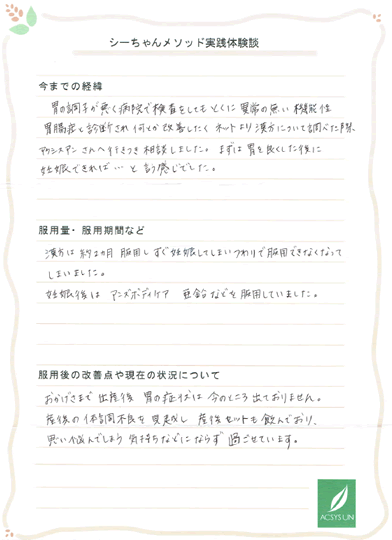 シーちゃんメソッド実践体験談
今までの経緯
胃の調子が悪く病院で検査をしてもとくに異常の無い機能性
胃腸症と診断され何とか改善したくネットより漢方について調べた際、
アクシスアンさんへ行きつき相談しました。まずは胃を良くした後に
妊娠できれば…と言う感じでした。
服用量・服用期間など
漢方は約2カ月服用しすぐ妊娠してしまいつわりで服用できなくなって
しまいました。
妊娠後はアンズボディケア 亜鉛などを服用していました。
服用後の改善点や現在の状況について
おかげさまで出産後胃の症状は今のところ出ておりません。
産後の体調不良を見越し産後セットも飲んでおり、
思い悩んでしまう気持ちなどにならず過ごせています。
ACSYSUN